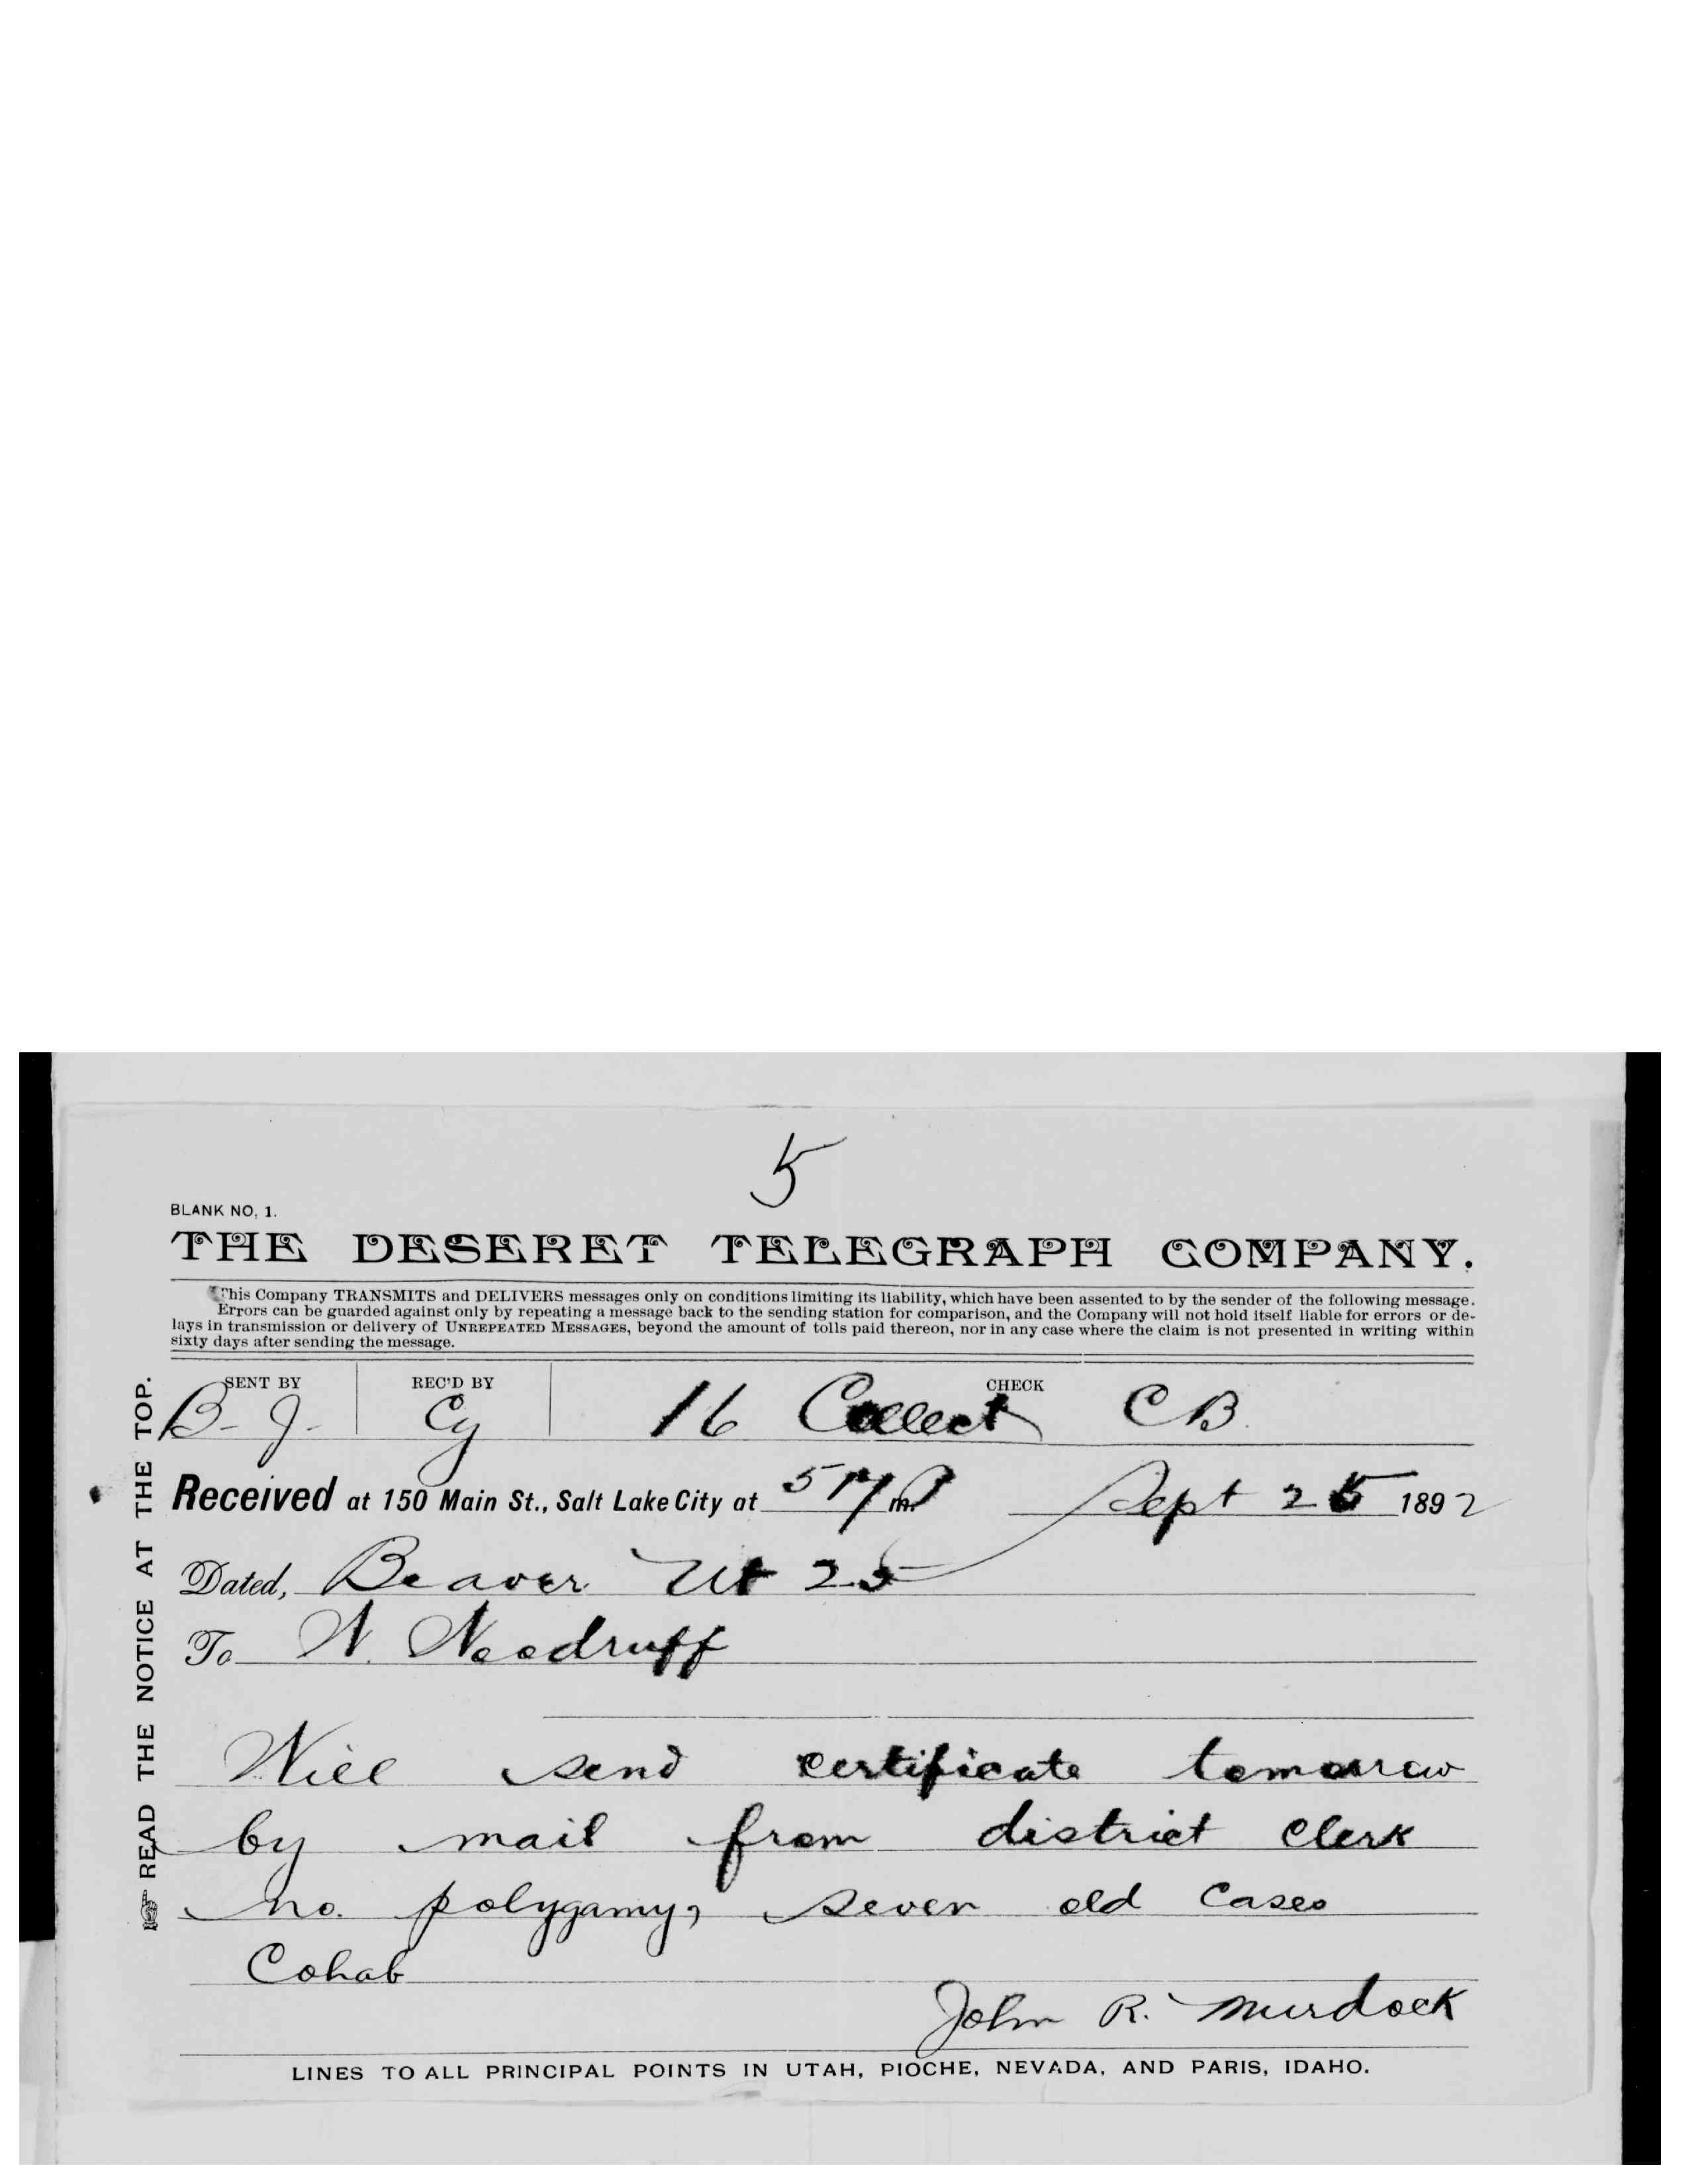 5
BLANK NO, 1.
THE DESERET TELEGRAPH COMPANY.
This Company TRANSMITS and DELIVERS messages only on conditions limiting its liability, which have been assented to by the sender of the following message.
Errors can be guarded against only by repeating a message back to the sending station for comparison, and the Company will not hold itself liable for errors or de-
lays in transmission or delivery of UNREPEATED MESSAGES, beyond the amount of tolls paid thereon, nor in any case where the claim is not presented in writing within
sixty days after sending the message.
SENT BY REC'D BY CHECK
B-J. Cy 16 Collect CB.
Received at 150 Main St., Salt Lake City at 517 P m. Sept 25 1892
Dated, Beaver Ut 25
To W. Woodruff
Will send certificate tomorrow
by mail from district Clerk
no. polygamy, seven old Cases
Cohab
John R. Murdock
LINES TO ALL PRINCIPAL POINTS IN UTAH, PIOCHE, NEVADA, AND PARIS, IDAHO.
READ THE NOTICE AT THE TOP.